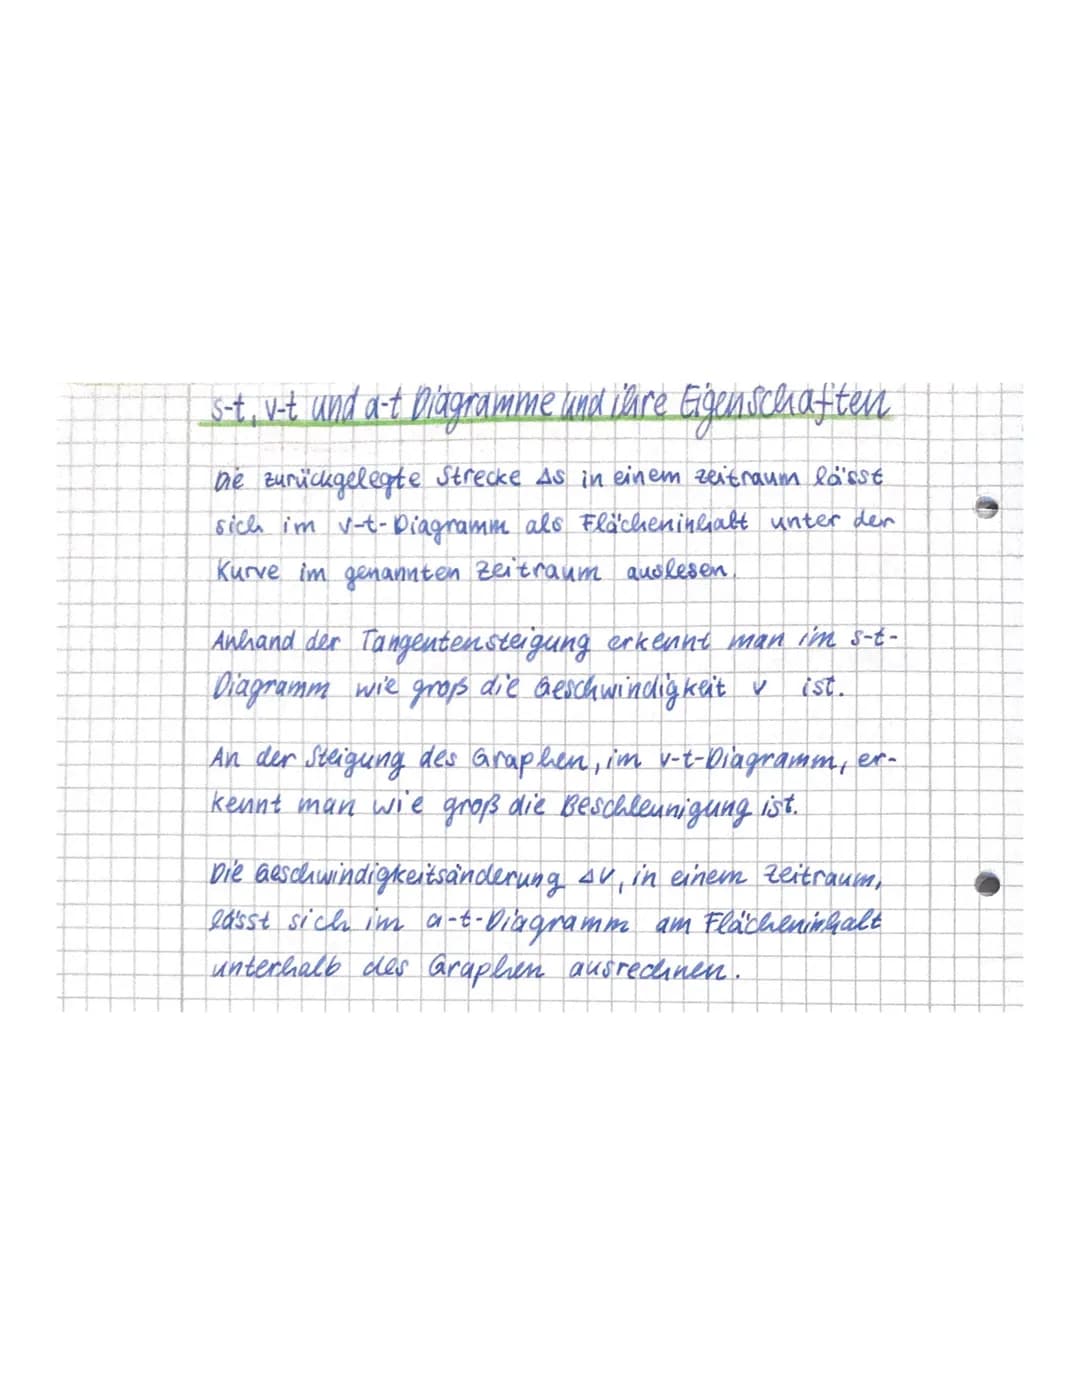 s-t, v-t und a-t Diagramme und ihre Eigenschaften
Die zurückgelegte Strecke Δs in einem Zeitraum lässt
sich im v-t-Diagramm als Flächeninhalt unter der
Kurve im genannten Zeitraum auslesen.
Anhand der Tangentensteigung erkennt man im s-t-
Diagramm wie groß die Geschwindigkeit v ist.
An der Steigung des Graphen, im v-t-Diagramm, er-
kennt man wie groß die Beschleunigung ist.
Die Geschwindigkeitsänderung Δv, in einem Zeitraum,
lässt sich im a-t-Diagramm am Flächeninhalt
unterhalb des Graphen ausrechnen.